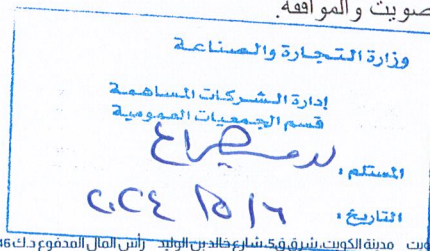 صويت والموافقة.
وزارة التجارة والصناعة
إدارة الشركات المساهمة
قسم الجمعيات العمومية
المستلم :
التاريخ : ٢٠٢٤ /٥ /٦
ويت مدينة الكويت، شرق، ق5، شارع خالد بن الوليد رأس المال المدفوع د.ك 46